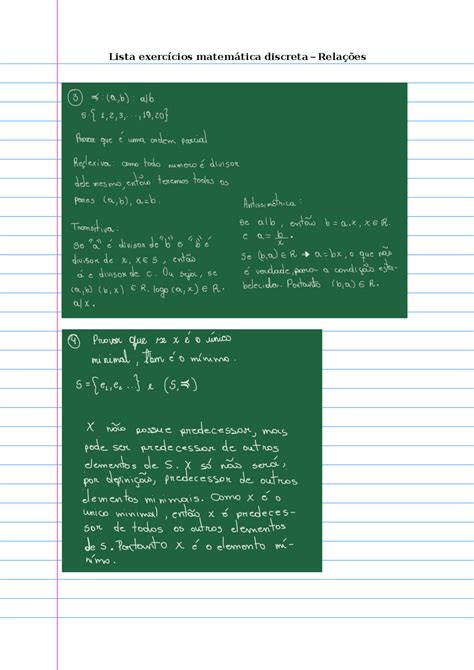 Lista exercícios matemática discreta – Relações
3 ≼: (a,b): a|b
S:{ 1,2,3,...,19,20}
Provar que é uma ordem parcial
Reflexiva: como todo numero é divisor
dele mesmo, então teremos todos os
pares (a,b), a=b.
Transitiva:
Se "a" é divisor de "b" e "b" é
divisor de x, x∈S, então
a é divisor de c. Ou seja, se
(a,b) (b,x) ∈ R, logo (a,x) ∈ R.
a/x.
Antissimétrica:
se a|b, então b = a.x, x∈R
e a = b/x.
Se (b,a) ∈ R → a=bx, o que não
é verdade, para a condição esta-
belecida. Portanto (b,a) ∈ R.
4 Provar que se x é o único
minimal, tbm é o mínimo.
S={e1,e2 ...} e (S,≼)
X não possue predecessor, mas
pode ser predecessor de outros
elementos de S. X só não será,
por definição, predecessor de outros
elementos minimais. Como X é o
único minimal, então X é predeces-
sor de todos os outros elementos
de S. Portanto X é o elemento mí-
nimo.